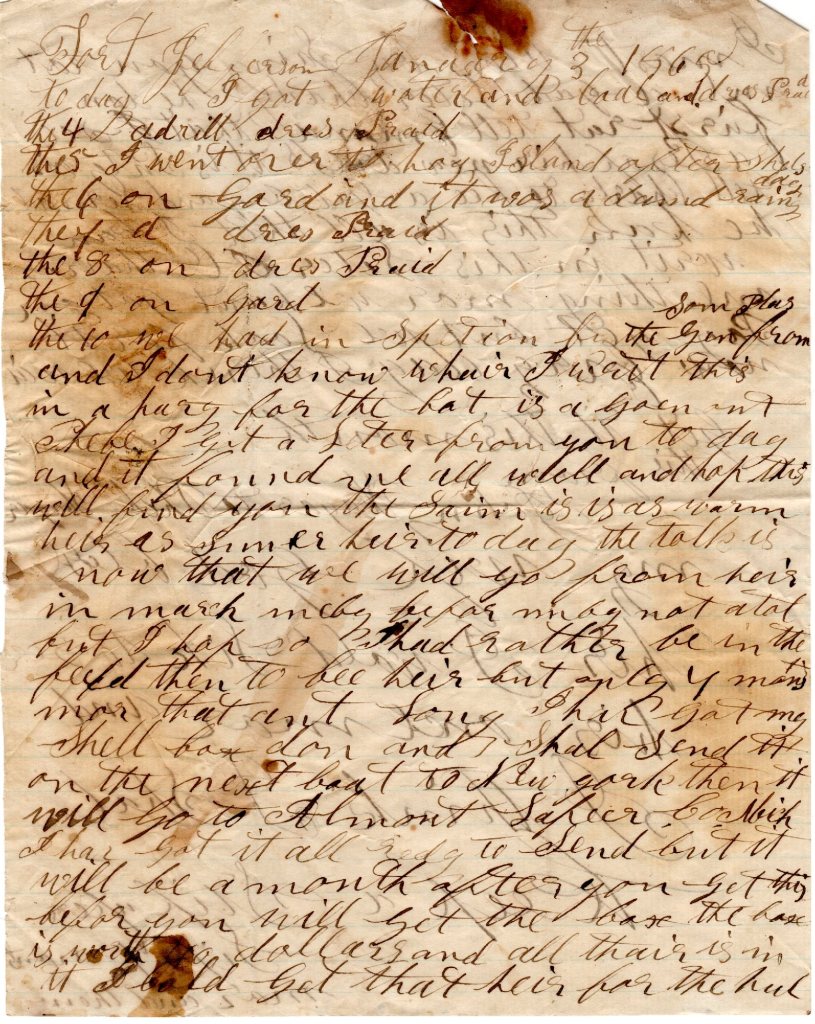 Fort Jeferson January the 3 186
to day I got water and and dres Praid
the 4 a drill dres Praid
the 5 I went over to hog Island after Shels
the 6 on Gard and it was a damd rany day
the 7 d dres Praid
the 8 on dres Praid
the 9 on Gard
the 10 we had in spction by the Gen from som plas
and I dont know whair I writ this
in a hury for the bot is a goen out
I git a leter from you to day
and it found me all well and hop this
will find you the Saim is is as warm
heir as sumer heir to day the talk is
now that we will go from heir
in march meby befor may not atol
but I hop so I had rather be in the
feeld then to bee heir but only 4 months
mor that ant long I hav got my
Shell box don and I Shal Send it
on the next boat to New york then it
will Go to Almont Lapeer Co Mich
I hav Got it all redy to Send but it
will be a month after you get this
befor you will get the box the box
is worth dollars and all thair is in
it I Cold Get that heir for the hul